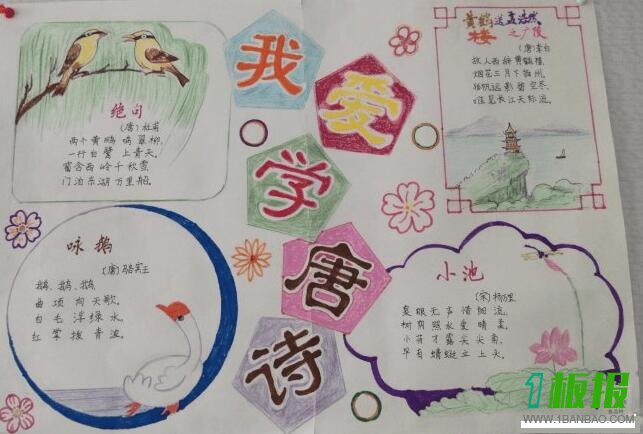 我
爱
学
唐
诗
绝句
(唐)杜甫
两个黄鹂鸣翠柳,
一行白鹭上青天。
窗含西岭千秋雪
门泊东湖万里船。
黄鹤楼送孟浩然
之广陵
(唐)李白
故人西辞黄鹤楼,
烟花三月下扬州。
孤帆远影碧空尽,
唯见长江天际流。
咏鹅
(唐)骆宾王
鹅、鹅、鹅,
曲项向天歌,
白毛浮绿水,
红掌拨青波。
小池
(宋)杨万里
泉眼无声惜细流,
树阴照水爱晴柔,
小荷才露尖尖角,
早有蜻蜓立上头。
1板报
WWW.1BANBAO.COM